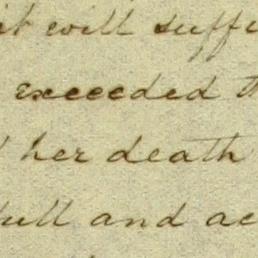 it will suffi
exceeded th
her death
full and ac